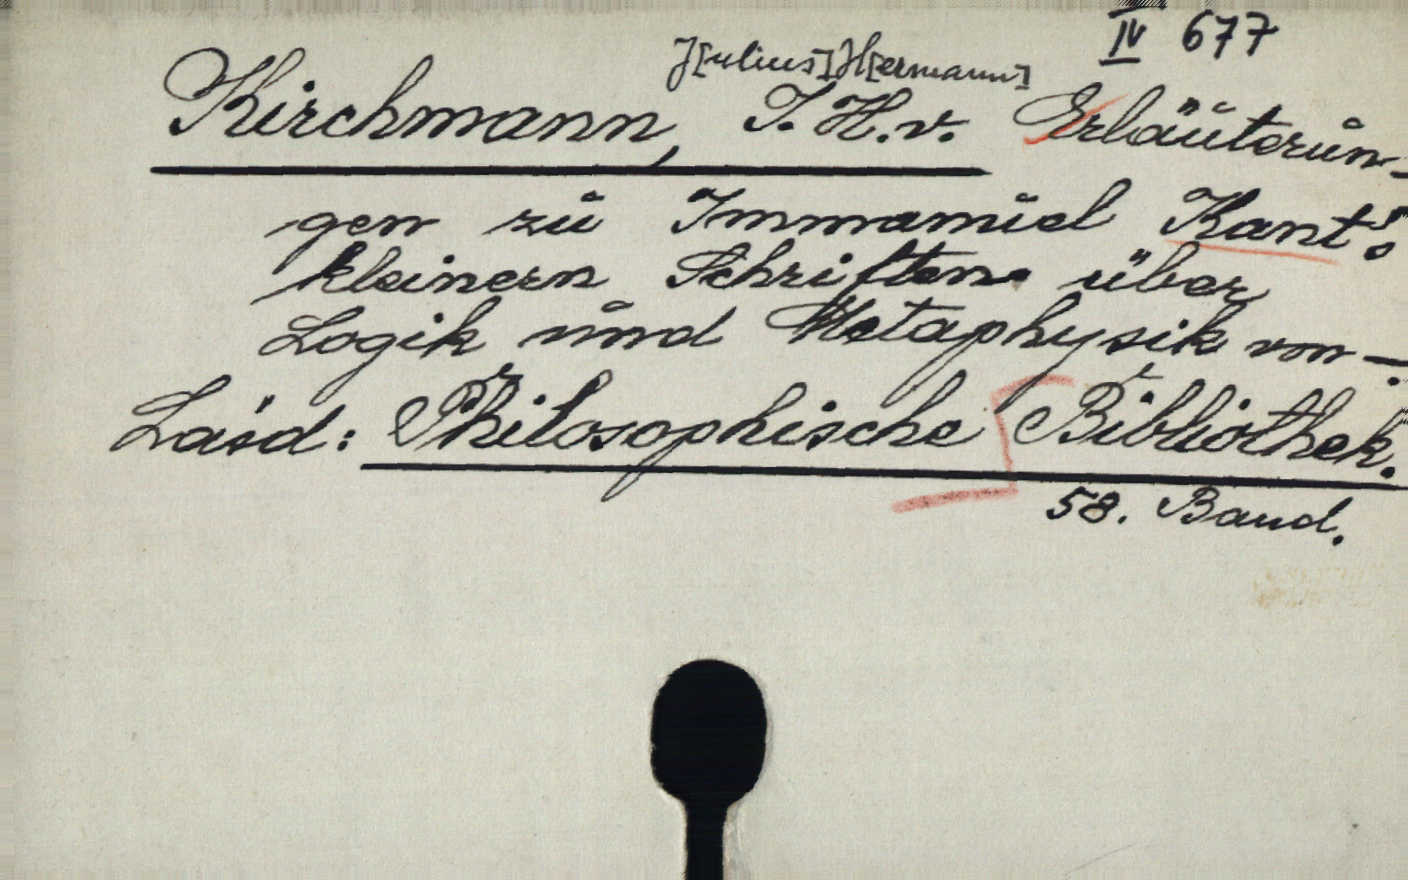 IV 677
J[ulius] H[ermann]
Kirchmann, J. H. v. Erläuterun-
gen zu Immanuel Kant's
kleinern Schriften über
Logik und Metaphysik von —.
Lásd: Philosophische Bibliothek.
58. Band.